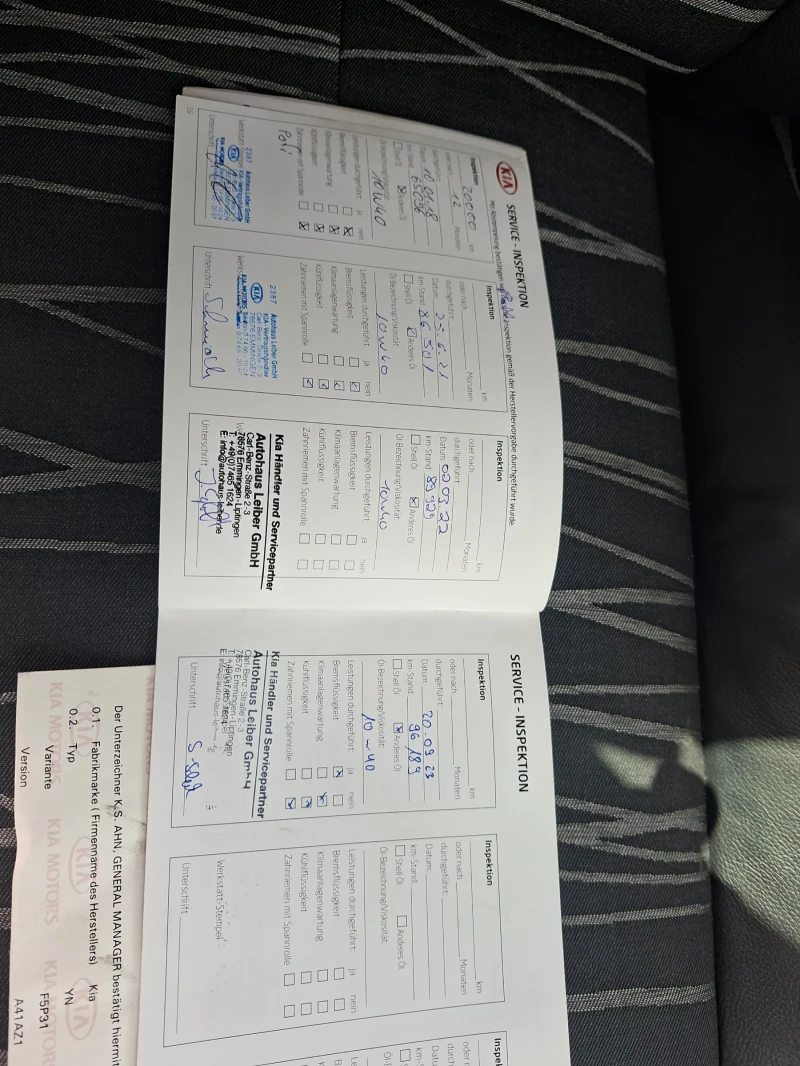 KIA
SERVICE - INSPEKTION
Inspektion
20000 km
oder nach 12 Monaten
durchgeführt:
Datum: 10.01.18
km-Stand:
Shell Öl
Anderes Öl
Öl-Bezeichnung/Viskosität:
10W40
Leistungen durchgeführt: ja nein
Bremsflüssigkeit
Klimaanlagenwartung
Kühlflüssigkeit
Zahnriemen mit Spannrolle
2387 Autohaus Leiber GmbH
KIA-Vertragshändler
Unterschrift
16
Inspektion
km
oder nach Monaten
durchgeführt:
Datum: 23.6.21
km-Stand: 86 501
Shell Öl
Anderes Öl
Öl-Bezeichnung/Viskosität:
10W40
Leistungen durchgeführt: ja nein
Bremsflüssigkeit
Klimaanlagenwartung
Kühlflüssigkeit
Zahnriemen mit Spannrolle
2387 Autohaus Leiber GmbH
KIA-Vertragshändler
Carl-Benz-Straße 2-3
78576 EMMINGEN
KIA MOTORS
Unterschrift
Inspektion
km
oder nach Monaten
durchgeführt:
Datum: 02.03.22
km-Stand: 89929
Shell Öl
Anderes Öl
Öl-Bezeichnung/Viskosität:
10W40
Leistungen durchgeführt: ja nein
Bremsflüssigkeit
Klimaanlagenwartung
Kühlflüssigkeit
Zahnriemen mit Spannrolle
Kia Händler und Servicepartner
Autohaus Leiber GmbH
Carl-Benz-Straße 2-3
78576 Emmingen-Liptingen
T: +49(0)7465 1624
E: info@autohaus-leiber.de
Unterschrift
SERVICE - INSPEKTION
Inspektion
km
oder nach Monaten
durchgeführt:
Datum: 20.09.23
km-Stand: 96 189
Shell Öl
Anderes Öl
Öl-Bezeichnung/Viskosität:
10W40
Leistungen durchgeführt: ja nein
Bremsflüssigkeit
Klimaanlagenwartung
Kühlflüssigkeit
Zahnriemen mit Spannrolle
Kia Händler und Servicepartner
Autohaus Leiber GmbH
Carl-Benz-Straße 2-3
78576 Emmingen-Liptingen
Unterschrift
Inspektion
km
oder nach Monaten
durchgeführt:
Datum:
km-Stand:
Shell Öl
Anderes Öl
Öl-Bezeichnung/Viskosität:
Leistungen durchgeführt: ja nein
Bremsflüssigkeit
Klimaanlagenwartung
Kühlflüssigkeit
Zahnriemen mit Spannrolle
Werkstatt-Stempel
Unterschrift
Der Unterzeichner K.S. AHN, GENERAL MANAGER bestätigt hiermit
0.1. Fabrikmarke ( Firmenname des Herstellers) Kia
0.2. Typ YN
Variante F5P31
Version A41AZ1
KIA MOTORS KIA MOTORS